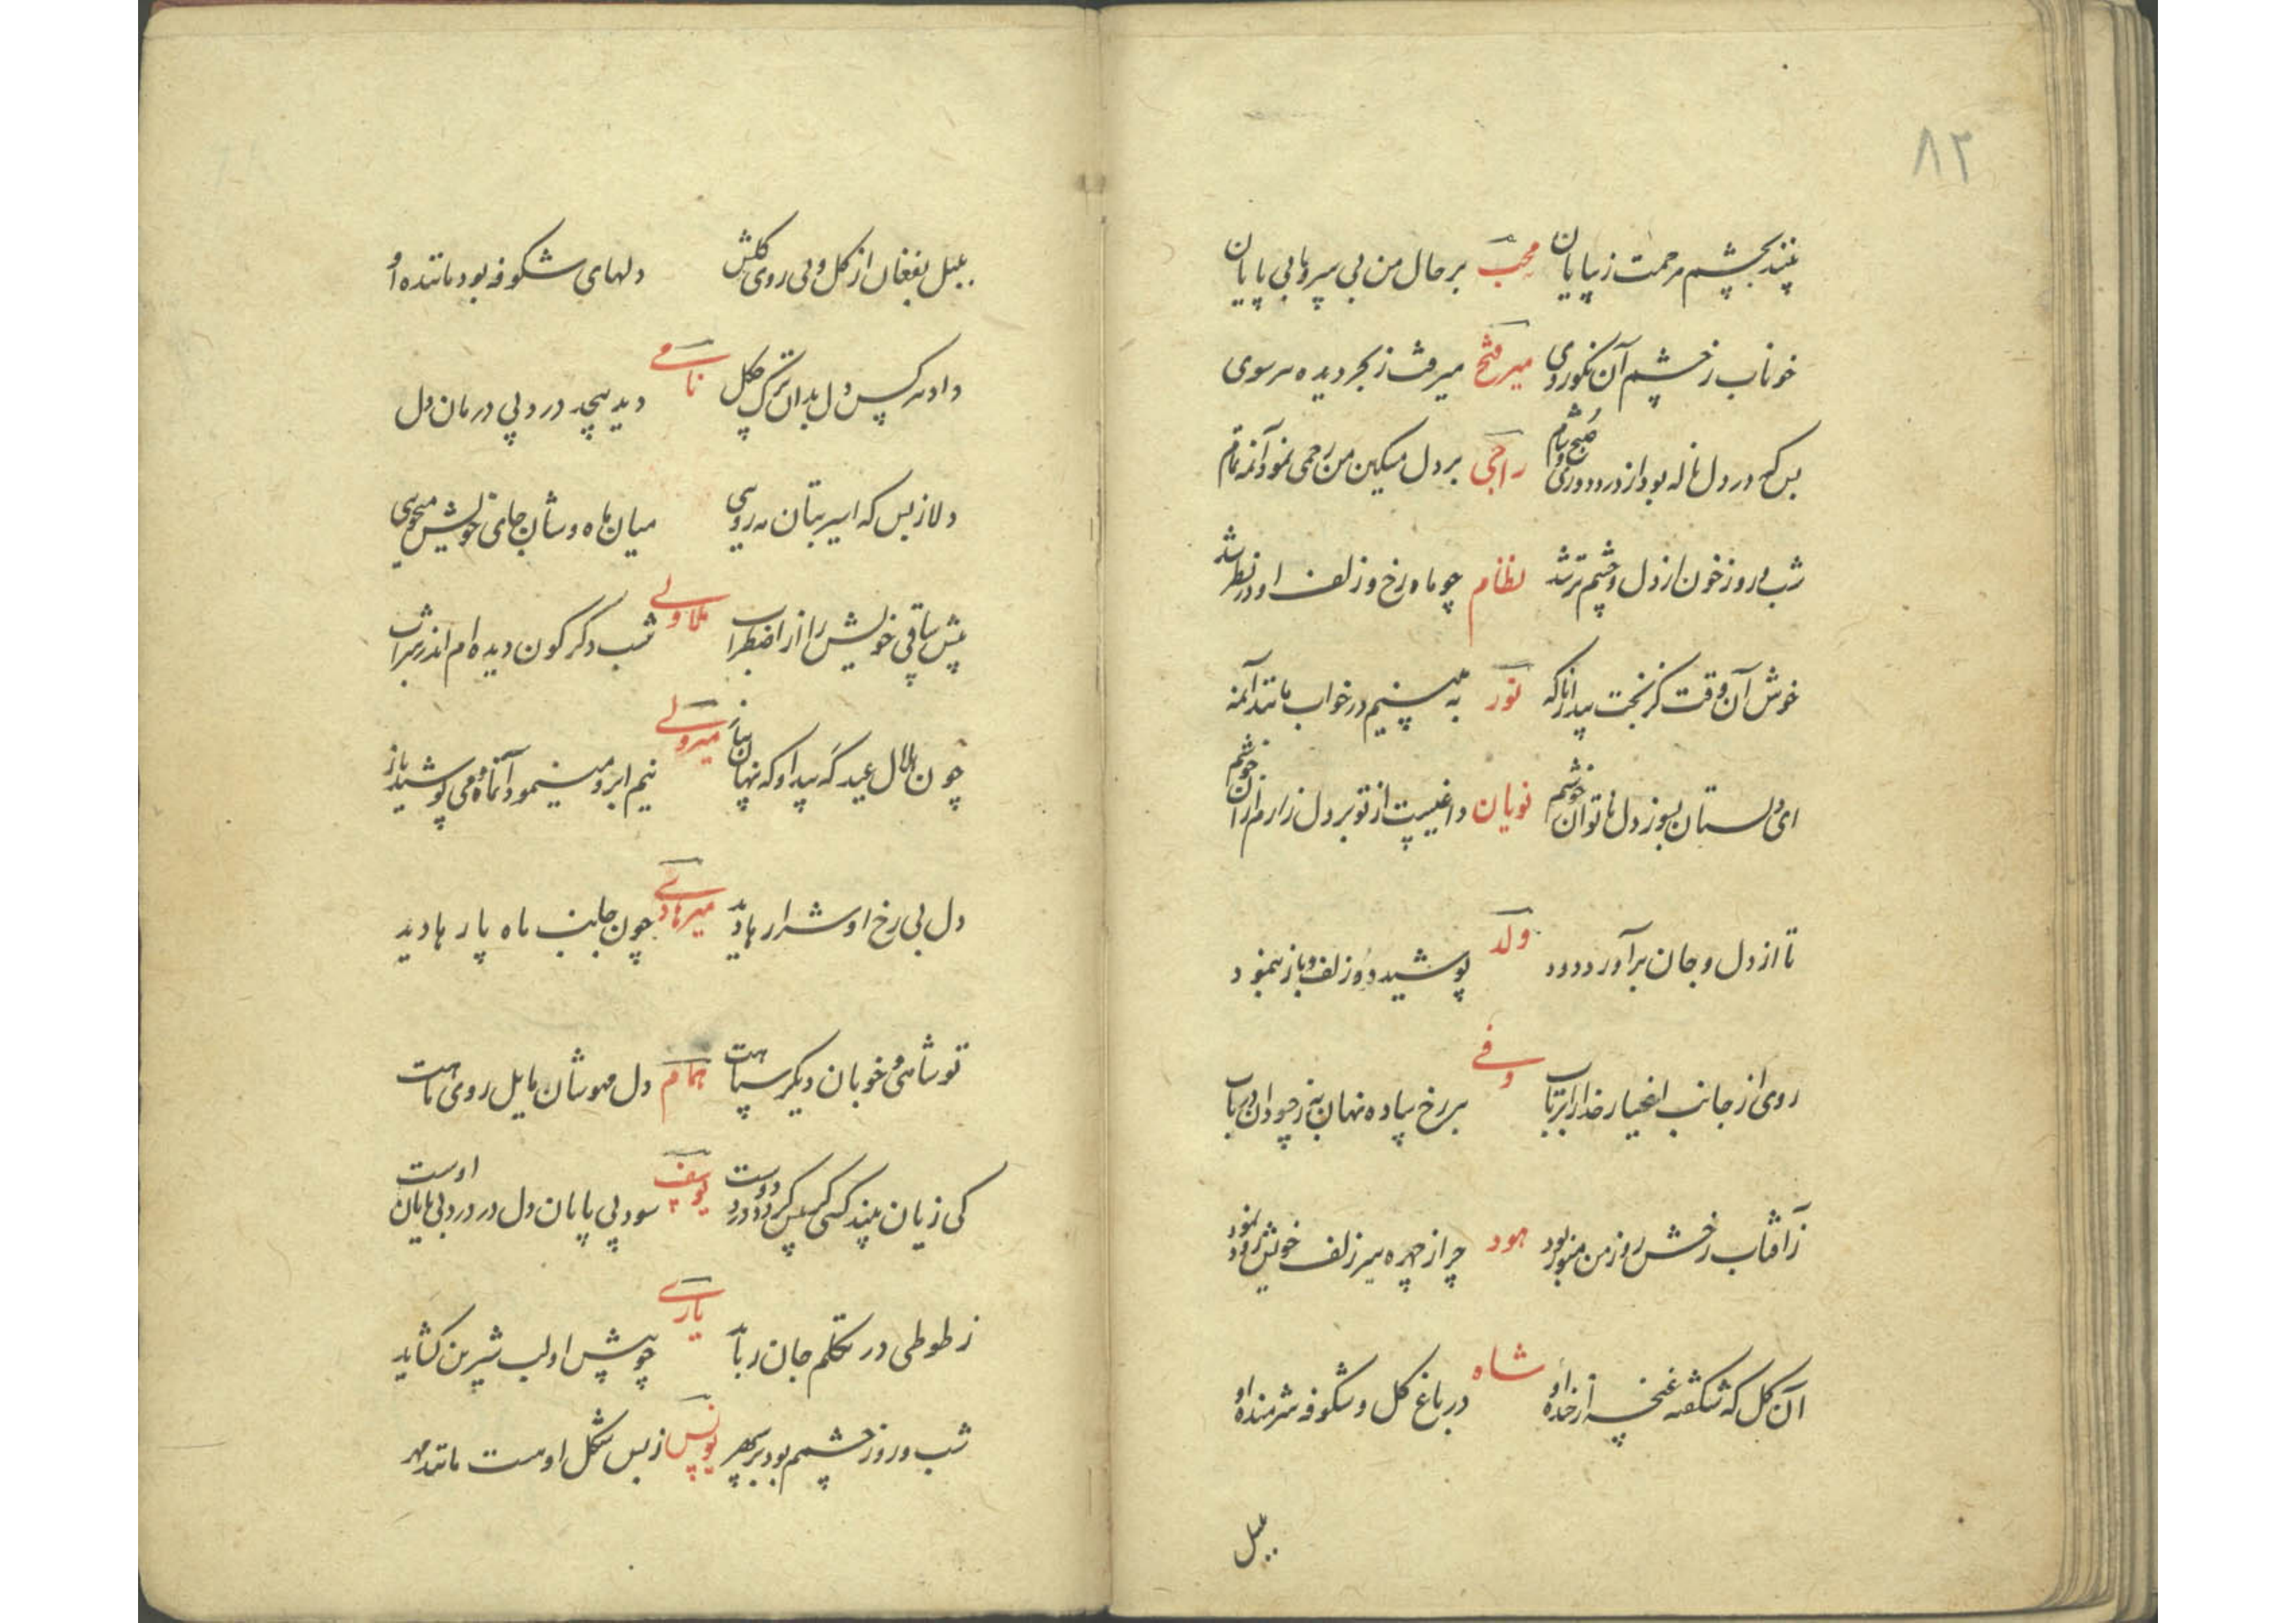 ۸۲
بیند بچشم مرحمت زیبایان محب بر حال من بی سر و پا بی پایان
خوناب ز خشم آن نکوروی میر فتح میرفت ز بحر دیده هر سوی
بس که در دل ناله بود از درد دوری صبح و شام راجی بر دل مسکین من رحمی نمود آنمه تمام
شب و روز خون از دل و چشم تر شد نظام چو ماه رخ و زلف او در نظر شد
خوش آن وقت کز بخت بیدار ناگه نور به بینیم در خواب مانند آنمه
ای دلستان بسوز دل ناتوان خوشم نویان داغیست از تو بر دل زارم از آن خوشم
تا از دل و جان برآورد دود ولد پوشید دو زلف و باز بنمود
روی از جانب اغیار خدا را برتاب وفی بر رخ ساده نهان به ز حسودان در باب
ز آفتاب رخش روز من منور بود هود چو از چهره سر زلف خویش زود نمود
آن گل که شگفته غنچه از خنده او شاه در باغ گل و شکوفه شرمنده او
بلبل
بلبل بفغان از گل و بی روی گلش دلهای شکوفه بود ماننده او
داد هر کس دل بدان ترک چگل نامی دید بیحد درد و بی درمان دل
دلا ز بس که اسیر بتان مه رویی میان ماه وشان جای خویش میجویی
پیش ساقی خویش را از اضطراب ملا ولی شب دگرگون دیده ام اندر شراب
چون هلال عید گه پیدا و گه پنهان ز ناز میر ولی نیم ابرو مینمود آنماه و می پوشید باز
دل بی رخ او شرارها دید میر هادی چون جانب ماه پارها دید
تو شاهی و خوبان دیگر سپاهت همام دل مهوشان مایل روی ماهت
کی زیان بیند کسی کز بس که گردد درد دوست یوسف سود بی پایان دل در درد بی پایان اوست
ز طوطی در تکلم جان رباید یاری چو پیش او لب شیرین گشاید
شب و روز چشمم بود بر سپهر یونس ز بس شکل او هست مانند مهر